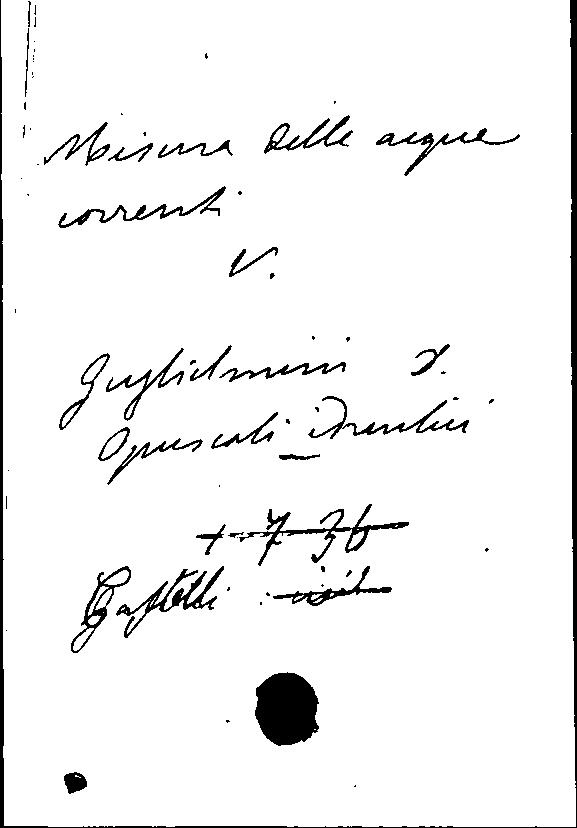 Misura delle acque
correnti
V.
Guglielmini D.
Opuscoli idraulici
+ 7 36
Castelli